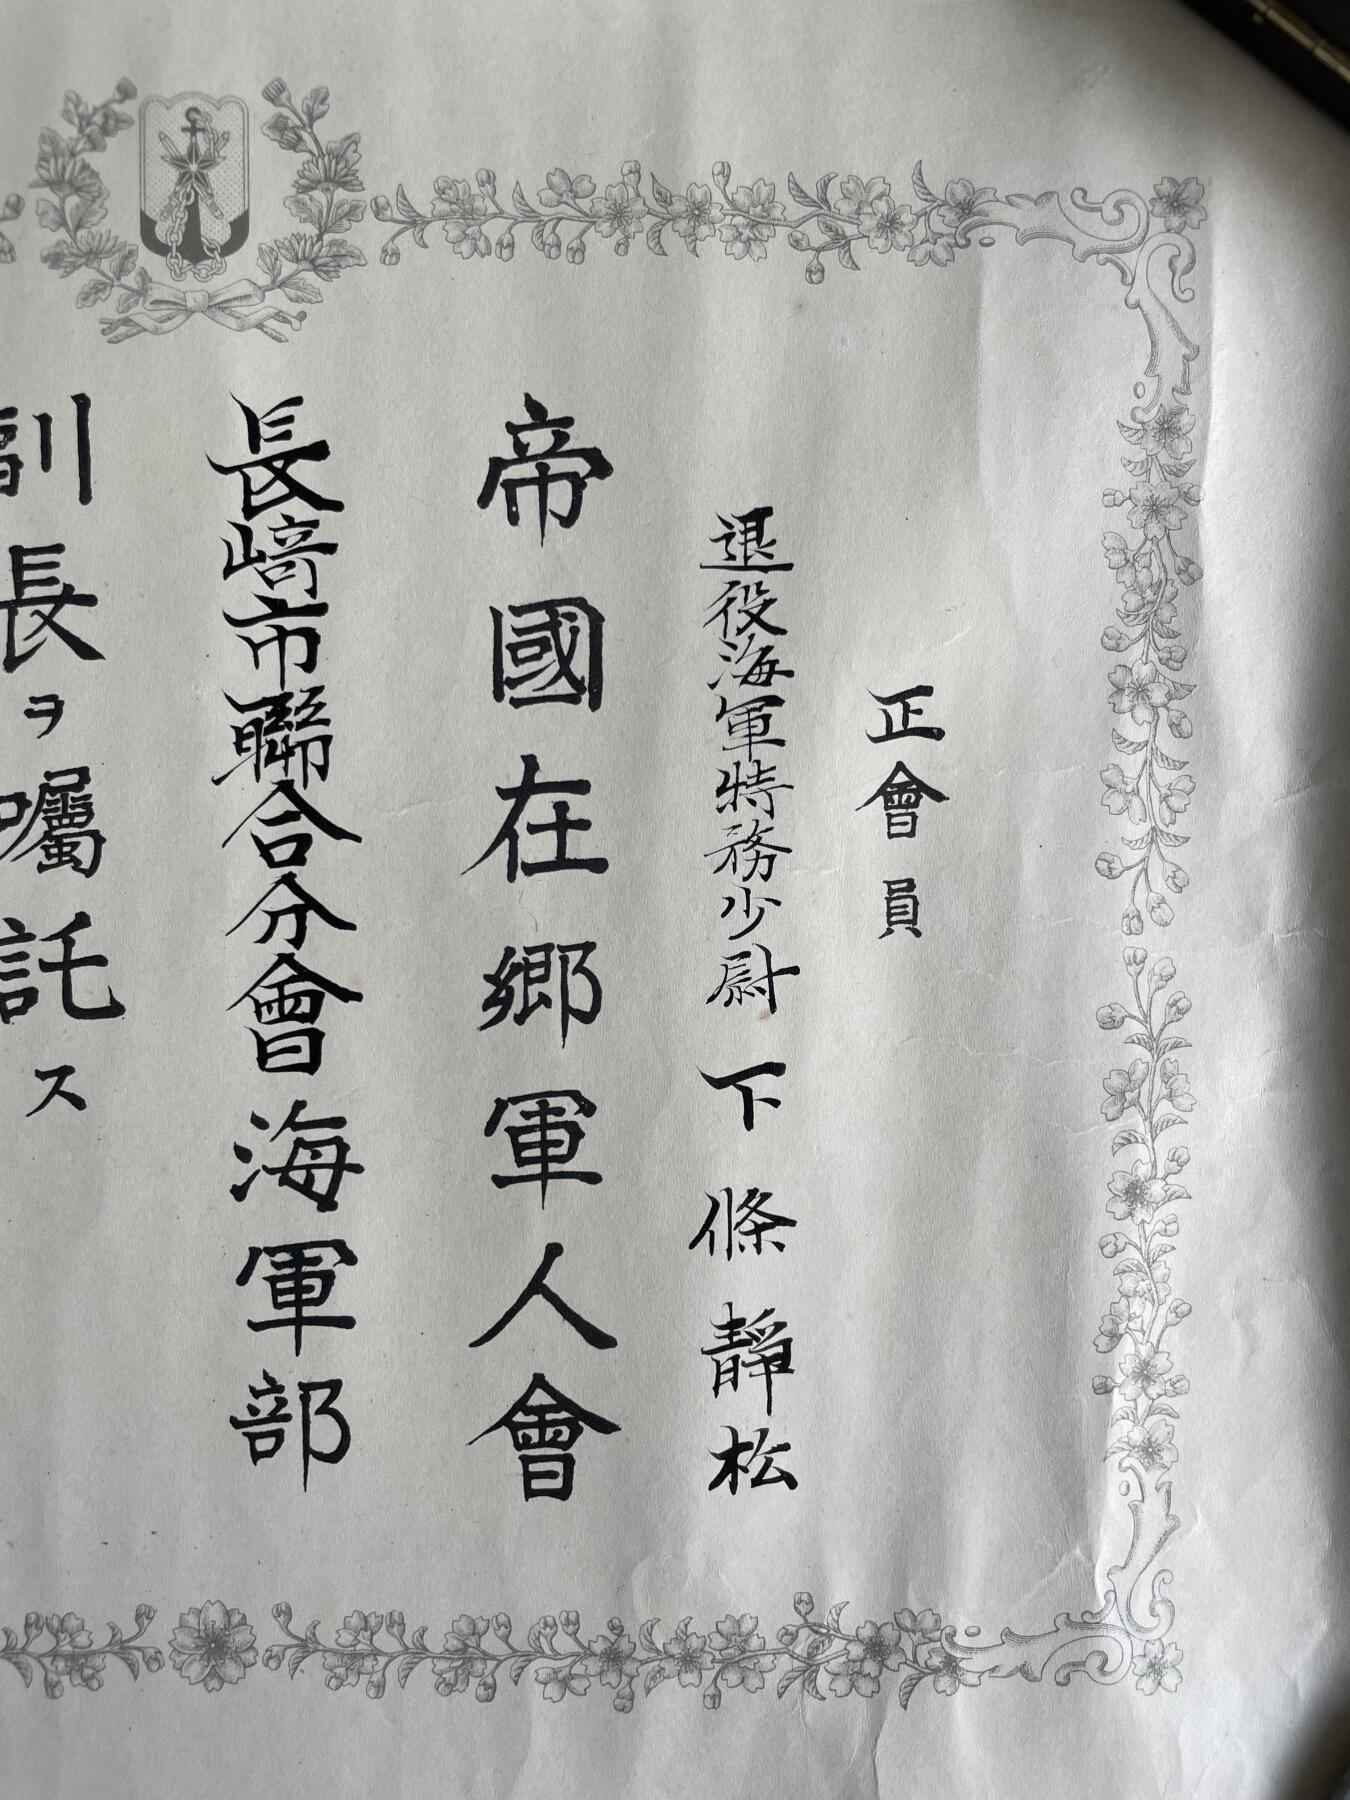 正會員
退役海軍特務少尉 下條靜松
帝國在郷軍人會
長﨑市聯合分會海軍部
副長ヲ囑託ス